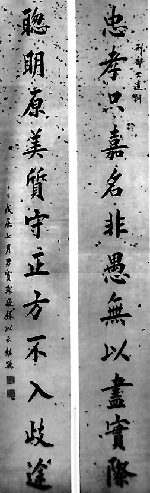 忠孝只嘉名非愚無以盡實際
聰明原美質守正方不入歧途